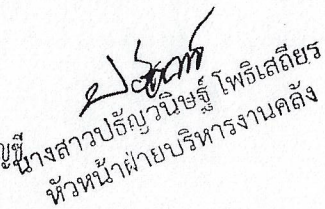 ญชี
นางสาวปรัญวนิษฐ์ โพธิเสถียร
หัวหน้าฝ่ายบริหารงานคลัง